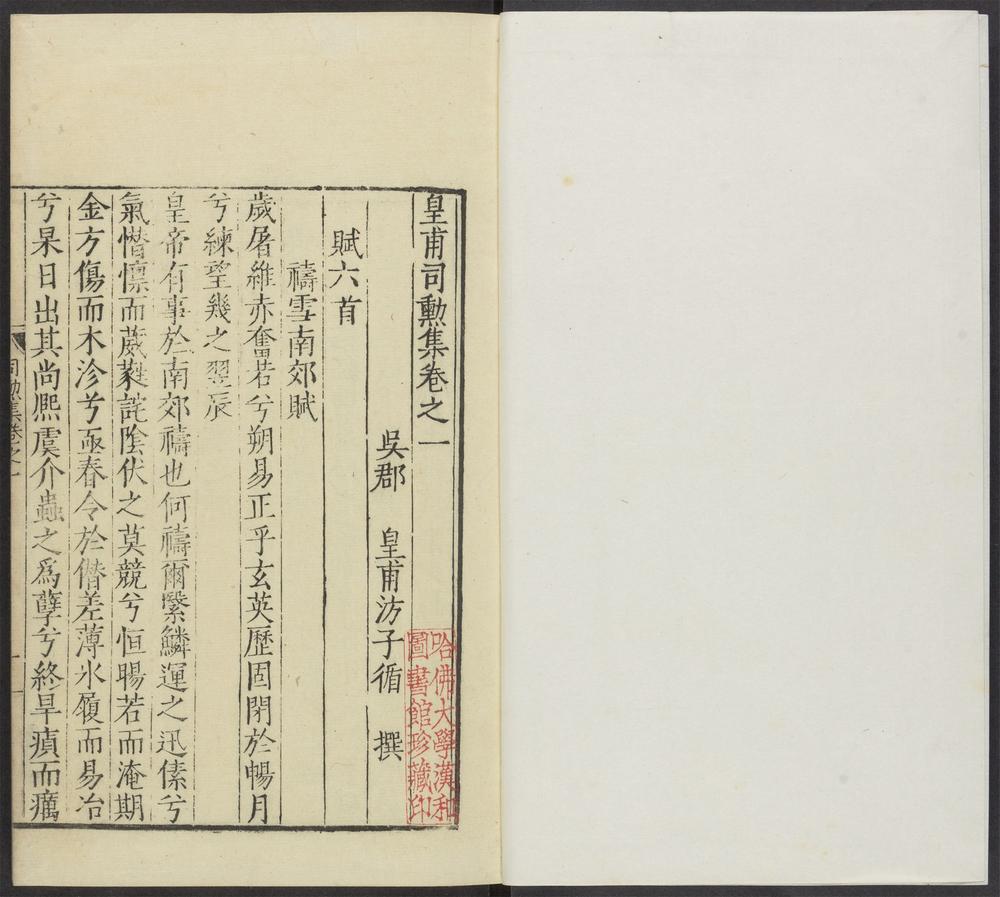 皇甫司勲集卷之一
吳郡 皇甫汸子循 撰
賦六首
禱雪南郊賦
歲屠維赤奮若兮朔易正乎玄英歷固閉於暢月
兮練望幾之翌辰
皇帝有事於南郊禱也何禱爾繄鱗運之迅傃兮
氣憯懍而葳蕤詫陰伏之莫競兮恒暘若而淹期
金方傷而木沴兮亟春令於僭差薄氷履而易冶
兮杲日出其尚熈虞介蟲之為孽兮終旱瘨而癘
司勲集卷之一
哈佛大學漢和
圖書館珍藏印